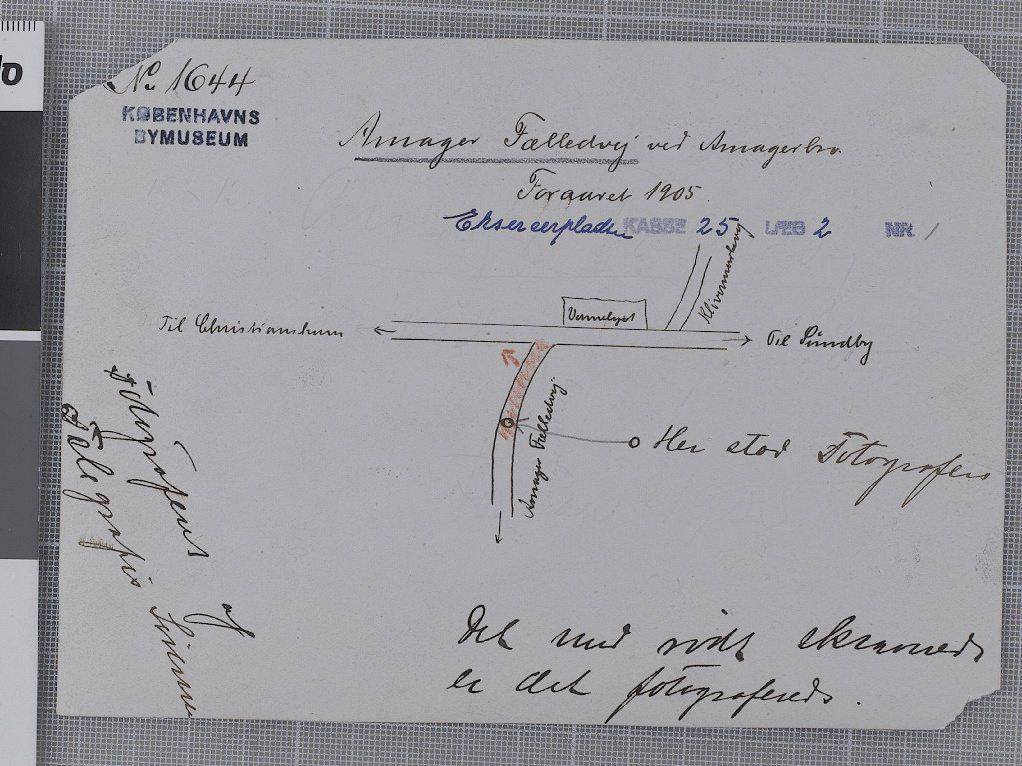 No 1644
KØBENHAVNS
BYMUSEUM
Amager Fælledvej ved Amagerbro
Foraaret 1905.
Ekserserpladsen KASSE 25 LÆG 2 NR 1
Kløvermarksvej
Vermelyst
Til Christianshavn
Til Sundby
Amager Fælledvej
Her stod Fotografen
Fotograferet af
Telegrafis
Det med rødt skraverede
er det fotograferede.